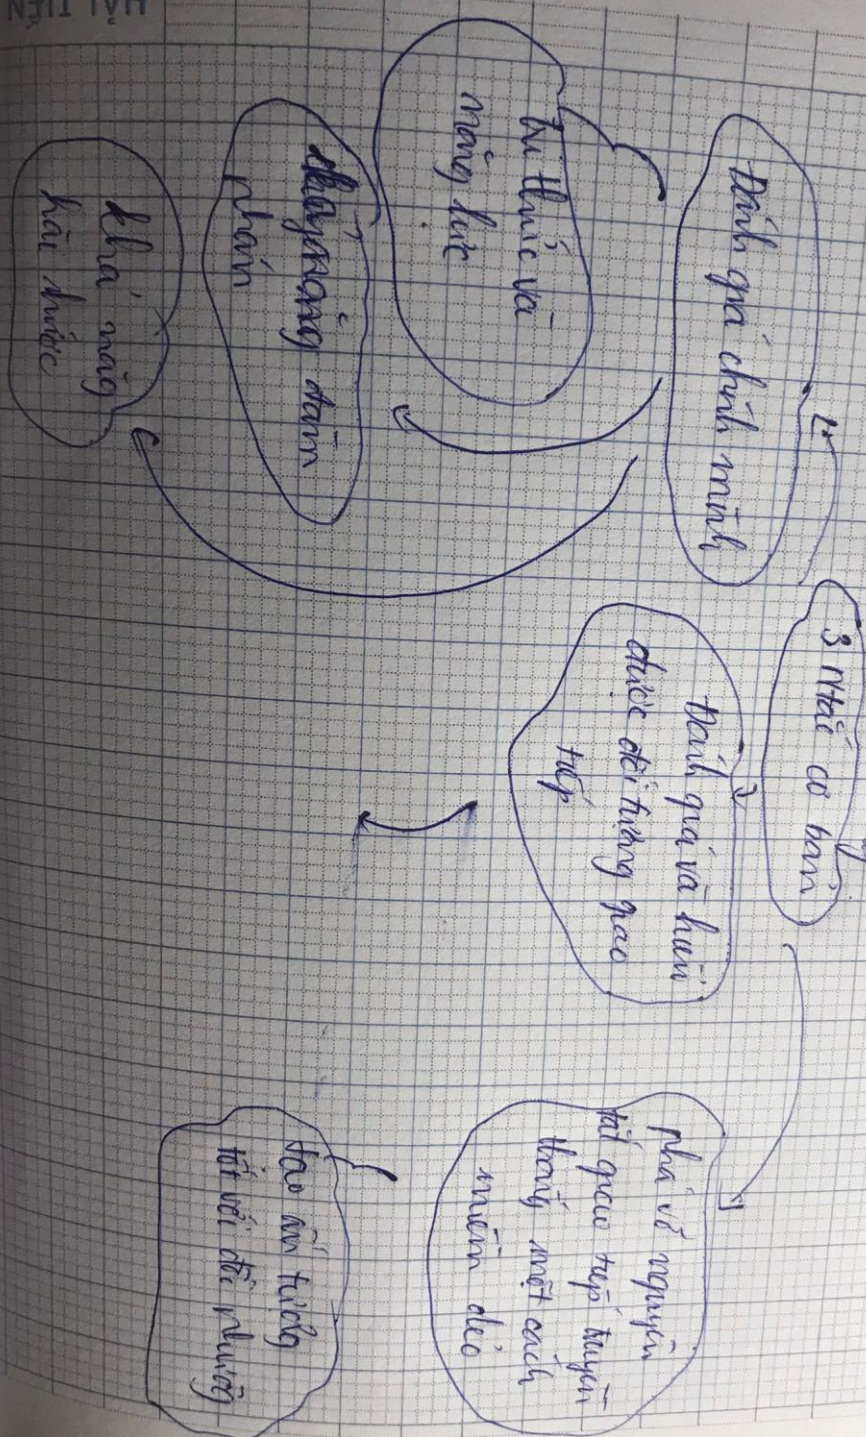 3 ng tắc cơ bản
Đánh giá chính mình
tri thức và
năng lực
khả năng đàm
phán
khả năng
hài hước
Đánh giá và hiểu
được đối tượng giao
tiếp
phá vỡ nguyên
tắc giao tiếp truyền
thống một cách
mềm dẻo
tạo ấn tượng
tốt với đối phương
HẢI TIẾN